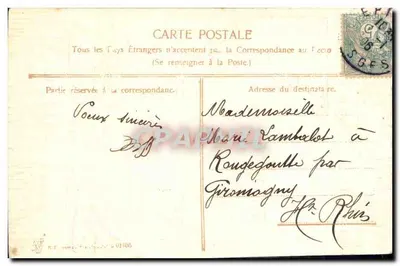 CARTE POSTALE
Tous les Pays Étrangers n'acceptent pas la Correspondance au Recto
(Se renseigner à la Poste.)
Partie réservée à la correspondance.
Adresse du destinataire.
Voeux sincères
Mademoiselle
Marie Lambalot à
Rougegoutte par
Giromagny
Ht Rhin